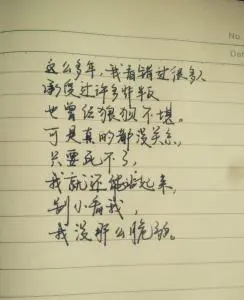 No
Dat
这么多年,我看错过很多人
承受过许多炸叛
也曾经狼狈不堪。
可是真的都没关系,
只要死不了,
我就还能站起来,
别小看我,
我没那么脆弱。